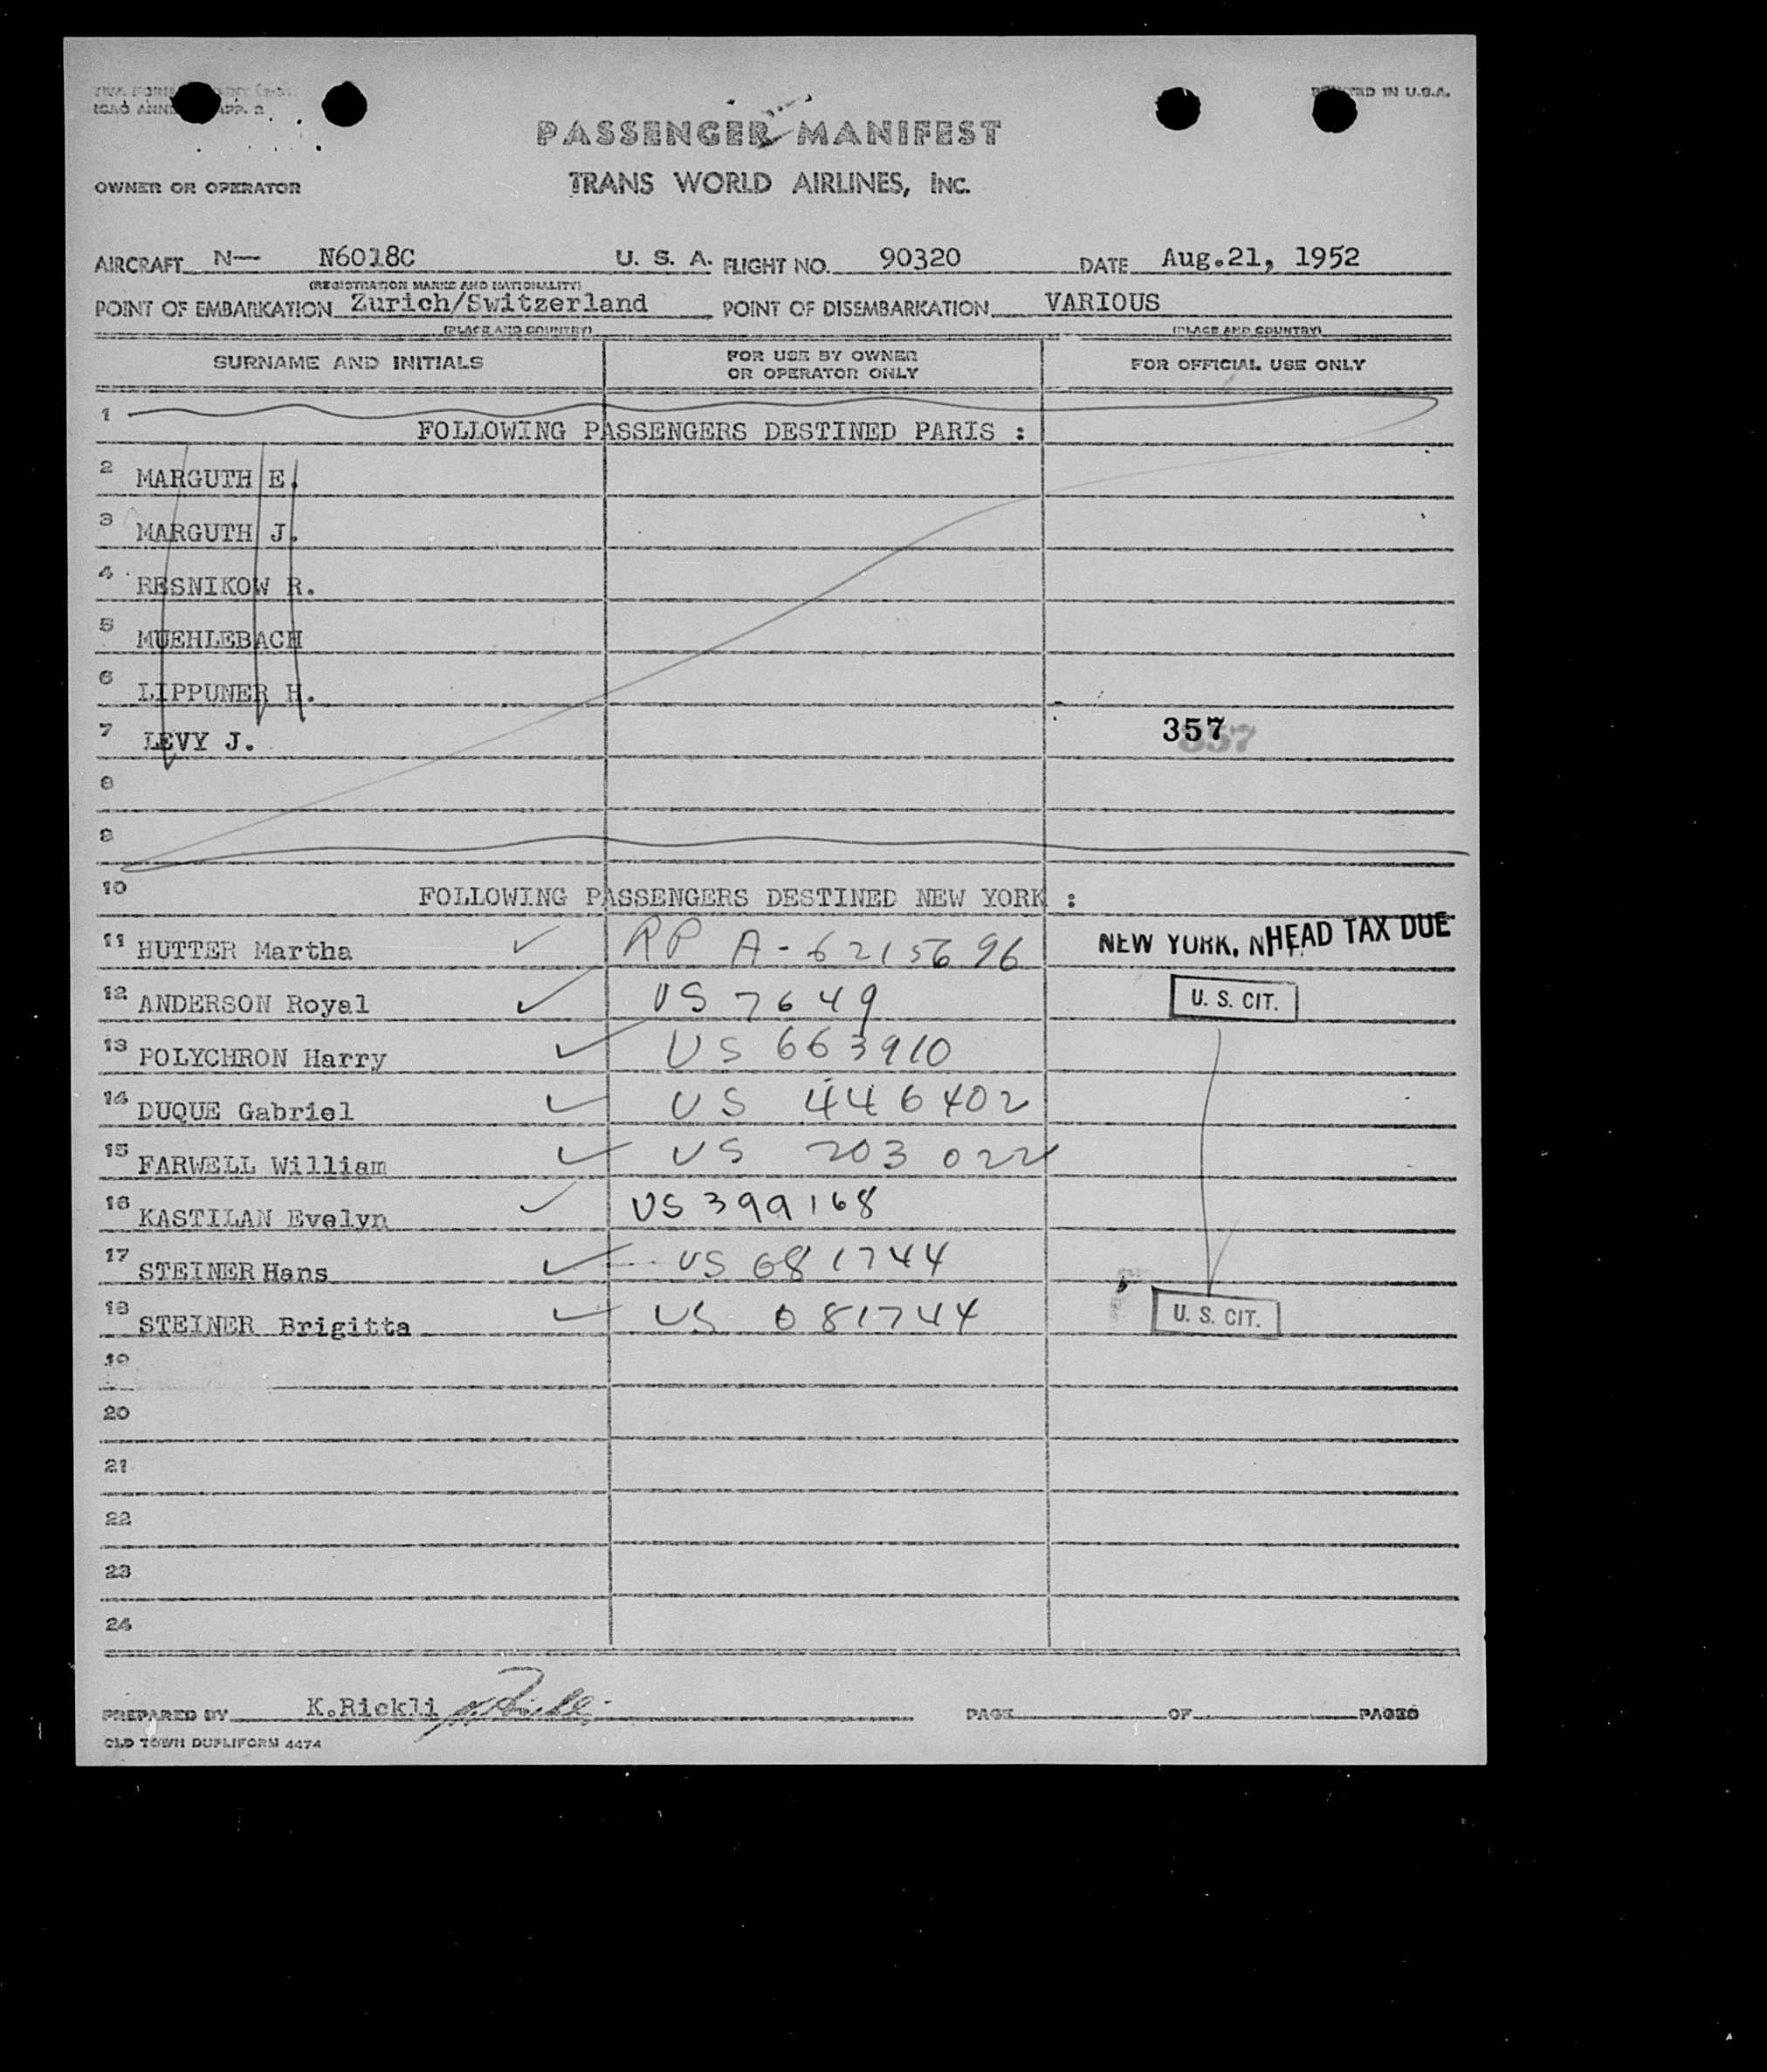 PRINTED IN U.S.A.
ICAO ANNE APP. 2
PASSENGER MANIFEST
OWNER OR OPERATOR TRANS WORLD AIRLINES, INC.
AIRCRAFT N— N6018C U. S. A. FLIGHT NO. 90320 DATE Aug.21, 1952
(REGISTRATION MARKS AND NATIONALITY)
POINT OF EMBARKATION Zurich/Switzerland POINT OF DISEMBARKATION VARIOUS
(PLACE AND COUNTRY) (PLACE AND COUNTRY)
SURNAME AND INITIALS FOR USE BY OWNER OR OPERATOR ONLY FOR OFFICIAL USE ONLY
1 FOLLOWING PASSENGERS DESTINED PARIS :
2 MARGUTH E.
3 MARGUTH J.
4 RESNIKOW R.
5 MUEHLEBACH
6 LIPPUNER H.
7 LEVY J. 357 357
8
9
10 FOLLOWING PASSENGERS DESTINED NEW YORK :
11 HUTTER Martha RP A-6215696 NEW YORK, N HEAD TAX DUE
12 ANDERSON Royal US 7649 U. S. CIT.
13 POLYCHRON Harry US 663910
14 DUQUE Gabriel US 446402
15 FARWELL William US 203022
16 KASTILAN Evelyn US 399168
17 STEINER Hans US 681744
18 STEINER Brigitta US 081744 U. S. CIT.
19
20
21
22
23
24
PREPARED BY K.Rickli K. Rickli PAGE OF PAGES
OLD TOWN DUPLIFORM 4474